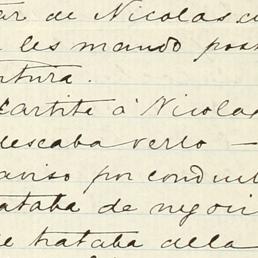 tar de Nicolas
les mando
tura.
Cartita á Nicolas
deseaba verlo —
aviso por conduc
ataba de negoci
e trataba alla